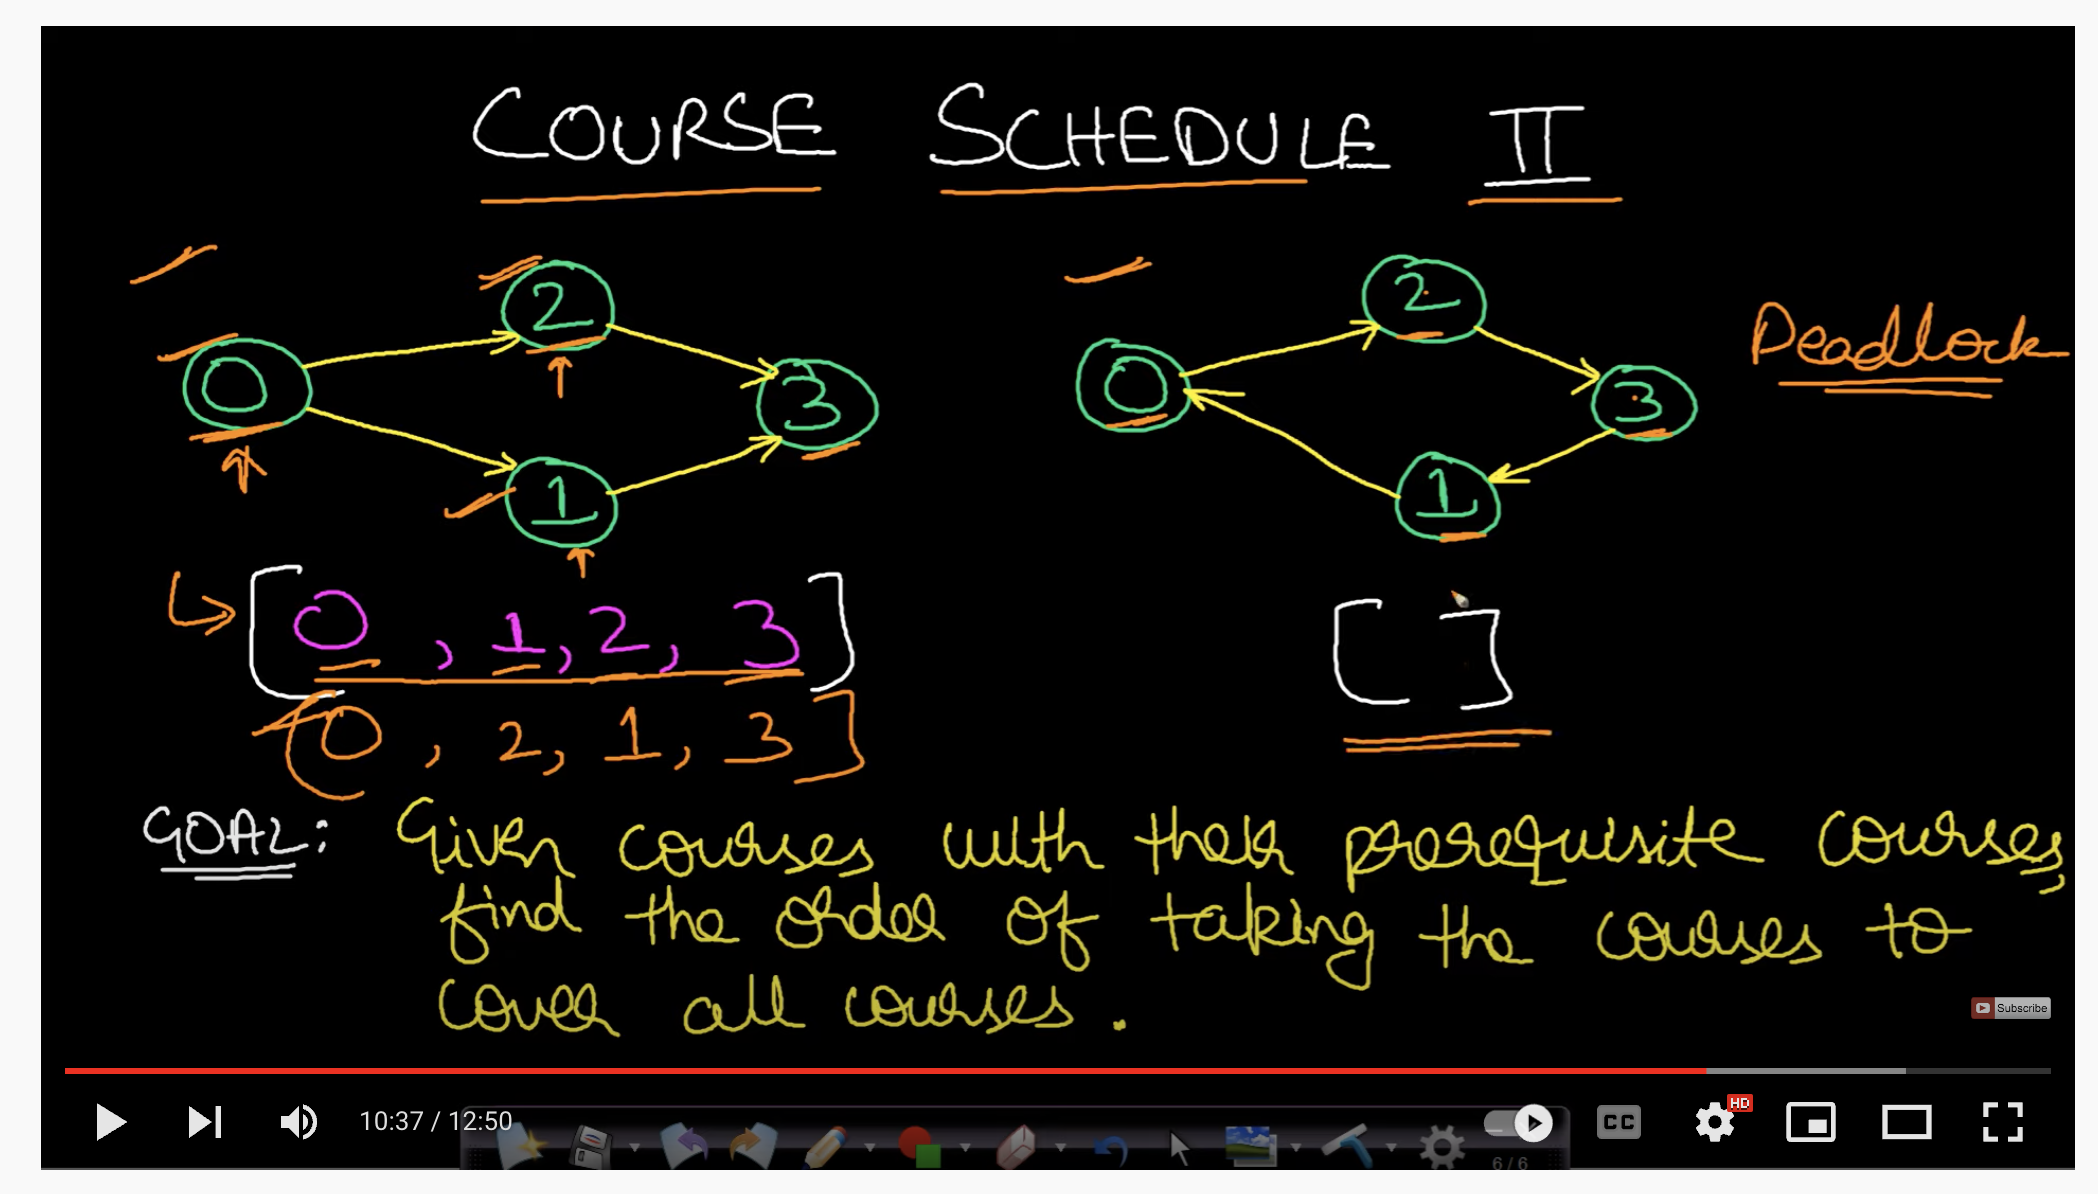 COURSE SCHEDULE II
2 2
Deadlock
0 3 0 3
1 1
[0, 1, 2, 3] [ ]
[0, 2, 1, 3]
GOAL: Given courses with their prerequisite courses,
find the order of taking the courses to
cover all courses.
Subscribe
10:37 / 12:50
CC
HD
6/6